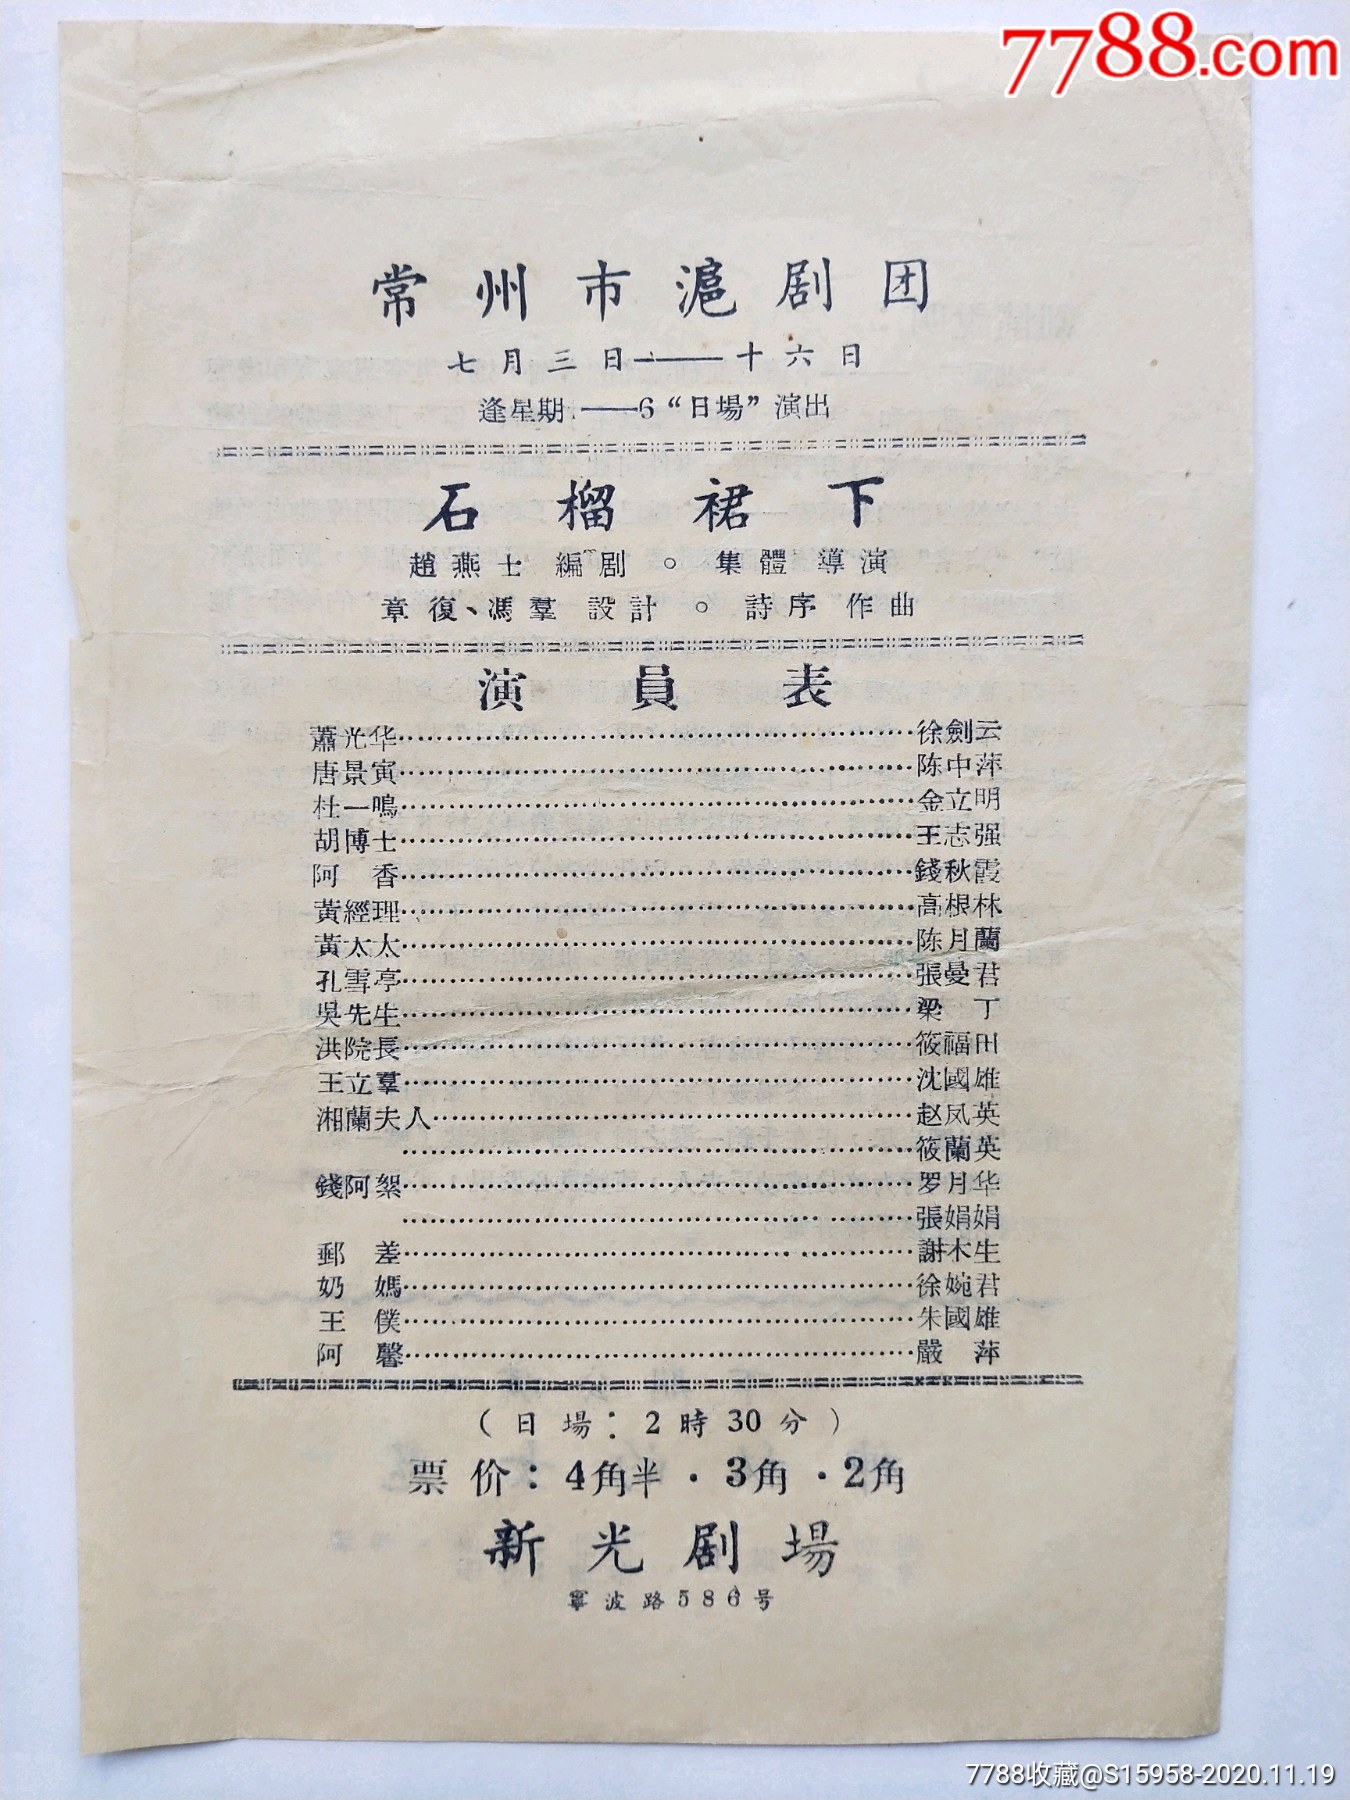 7788.com
常州市滬剧团
七月三日——十六日
逢星期·——6“日場”演出
石榴裙下
趙燕士 編剧 。 集體導演
章復、馮羣 設計 。 詩序 作曲
演員表
蕭光华……徐劍云
唐景寅……陈中萍
杜一鳴……金立明
胡博士……王志强
阿香……錢秋霞
黃經理……高根林
黃太太……陈月蘭
孔雪亭……張曼君
吳先生……梁丁
洪院長……筱福田
王立羣……沈國雄
湘蘭夫人……赵凤英
……筱蘭英
錢阿絮……罗月华
……張娟娟
郵差……謝木生
奶媽……徐婉君
王僕……朱國雄
阿馨……嚴萍
（日場：2時30分）
票价：4角半·3角·2角
新光剧場
寧波路586号
7788收藏@S15958-2020.11.19